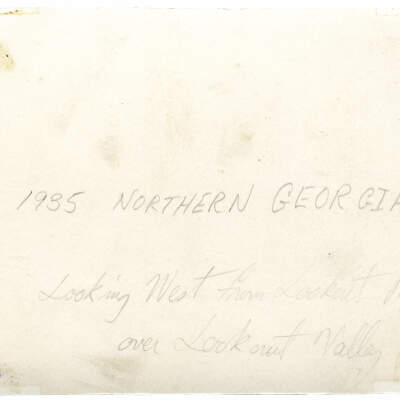 1935 NORTHERN GEORGIA
Looking West from Lookout
over Lookout Valley